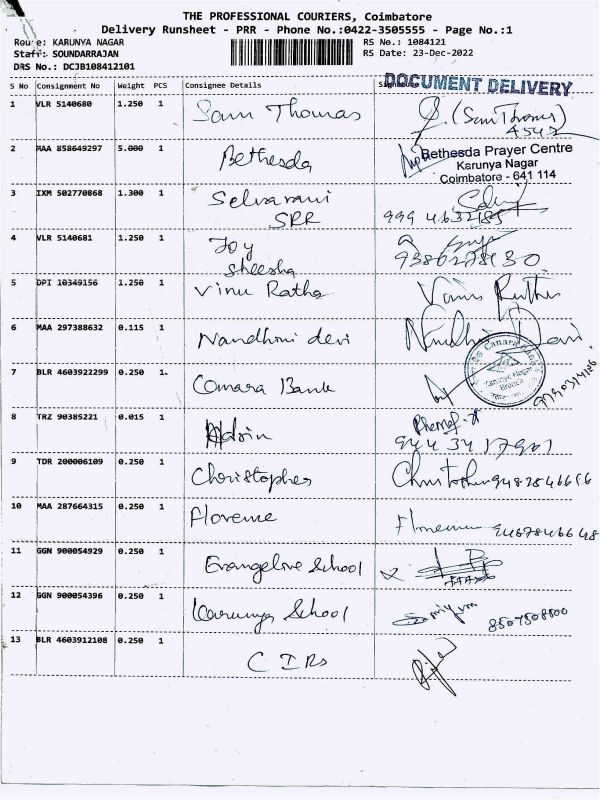 THE PROFESSIONAL COURIERS, Coimbatore
Delivery Runsheet - PRR - Phone No.:0422-3505555 - Page No.:1
Route: KARUNYA NAGAR RS No.: 1084121
Staff: SOUNDARRAJAN RS Date: 23-Dec-2022
DRS No.: DCJB108412101
DOCUMENT DELIVERY
S No Consignment No Weight PCS Consignee Details Signature
1 VLR 5140680 1.250 1 Sam Thomas (Sam Thomas)
4542
2 MAA 858649297 5.000 1 Bethesda Bethesda Prayer Centre
Karunya Nagar
Coimbatore - 641 114
3 IXM 502770868 1.300 1 Selvarani
SRR
4 VLR 5140681 1.250 1 Joy
Sheesha
5 DPI 10349156 1.250 1 Vinu Ratha
6 MAA 297388632 0.115 1 Nandhini devi Nandhini Devi
7 BLR 4603922299 0.250 1 Canara Bank Canara Bank
Karunya Nagar
Branch
8 TRZ 90385221 0.015 1
9 TDR 200006109 0.250 1 Christopher
10 MAA 287664315 0.250 1 Florence
11 GGN 900054929 0.250 1 Evangeline School
12 GGN 900054396 0.250 1 Karunya School 8507508500
13 BLR 4603912108 0.250 1 C I Rs